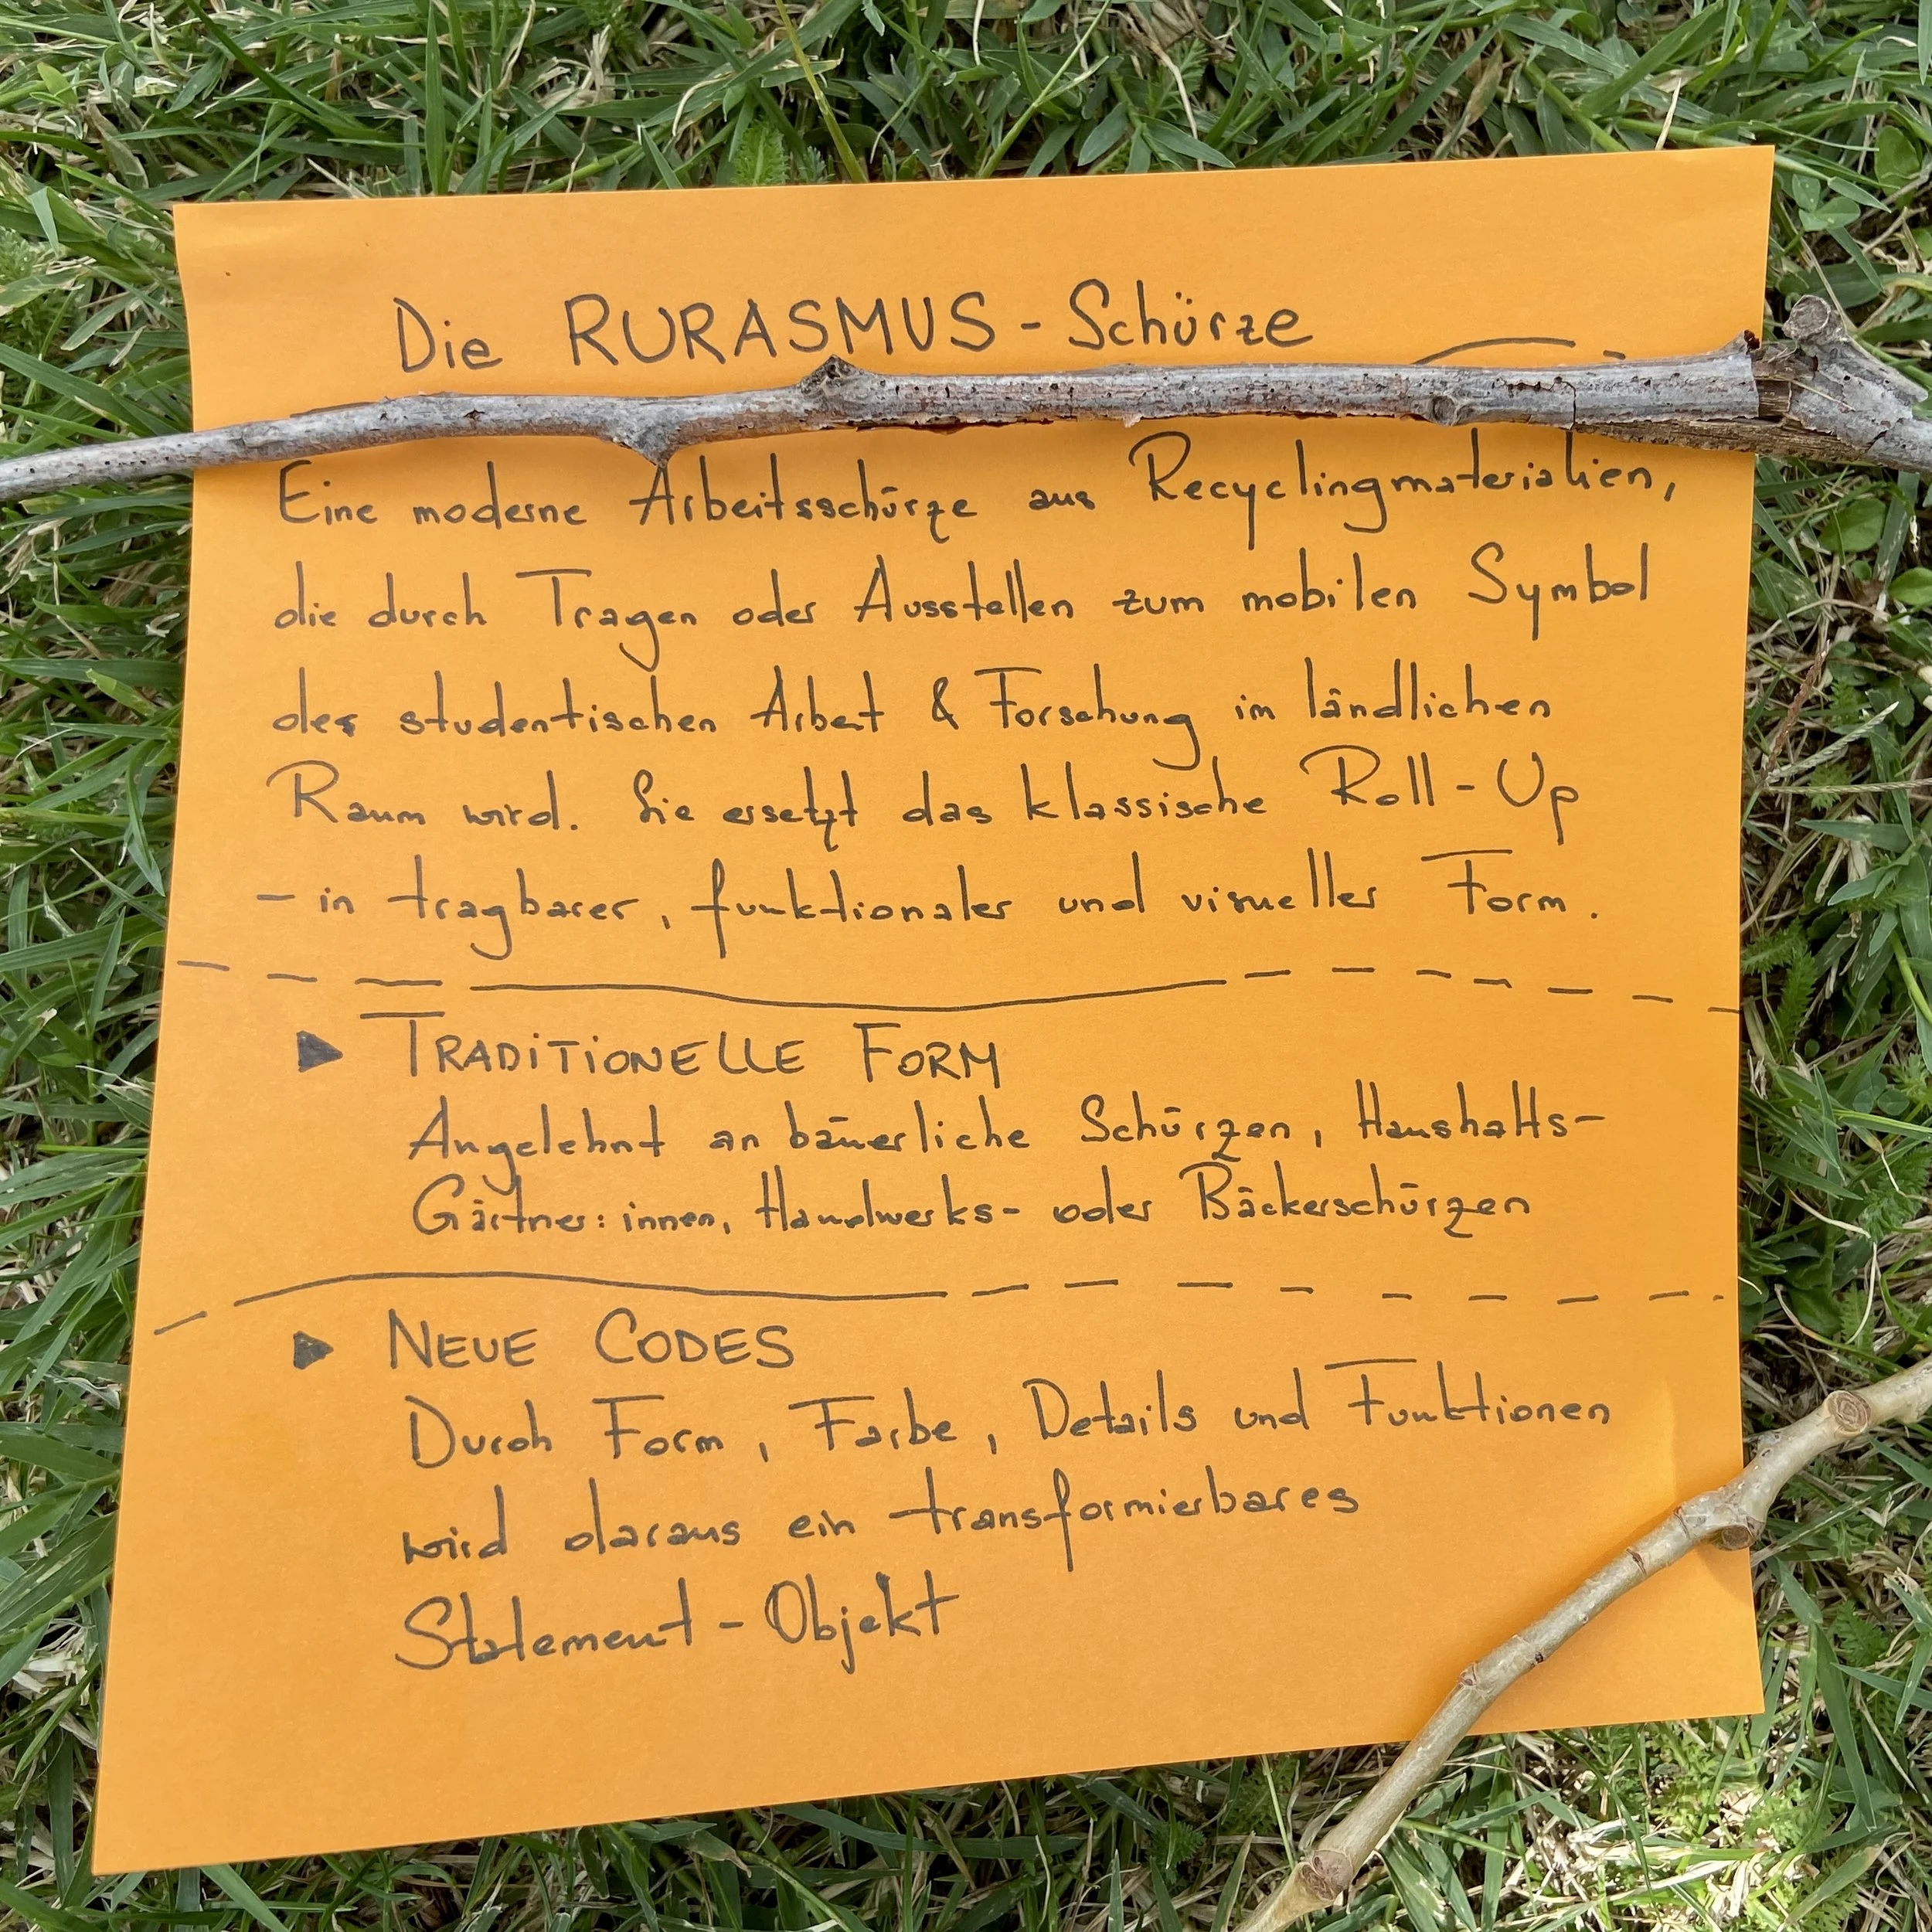 Die RURASMUS - Schürze
Eine moderne Arbeitsschürze aus Recyclingmaterialien,
die durch Tragen oder Ausstellen zum mobilen Symbol
der studentischen Arbeit & Forschung im ländlichen
Raum wird. Sie ersetzt das klassische Roll-Up
- in tragbarer, funktionaler und visueller Form.
▶ TRADITIONELLE FORM
Angelehnt an bäuerliche Schürzen, Haushalts-
Gärtner:innen, Handwerks- oder Bäckerschürzen
▶ NEUE CODES
Durch Form, Farbe, Details und Funktionen
wird daraus ein transformierbares
Statement - Objekt